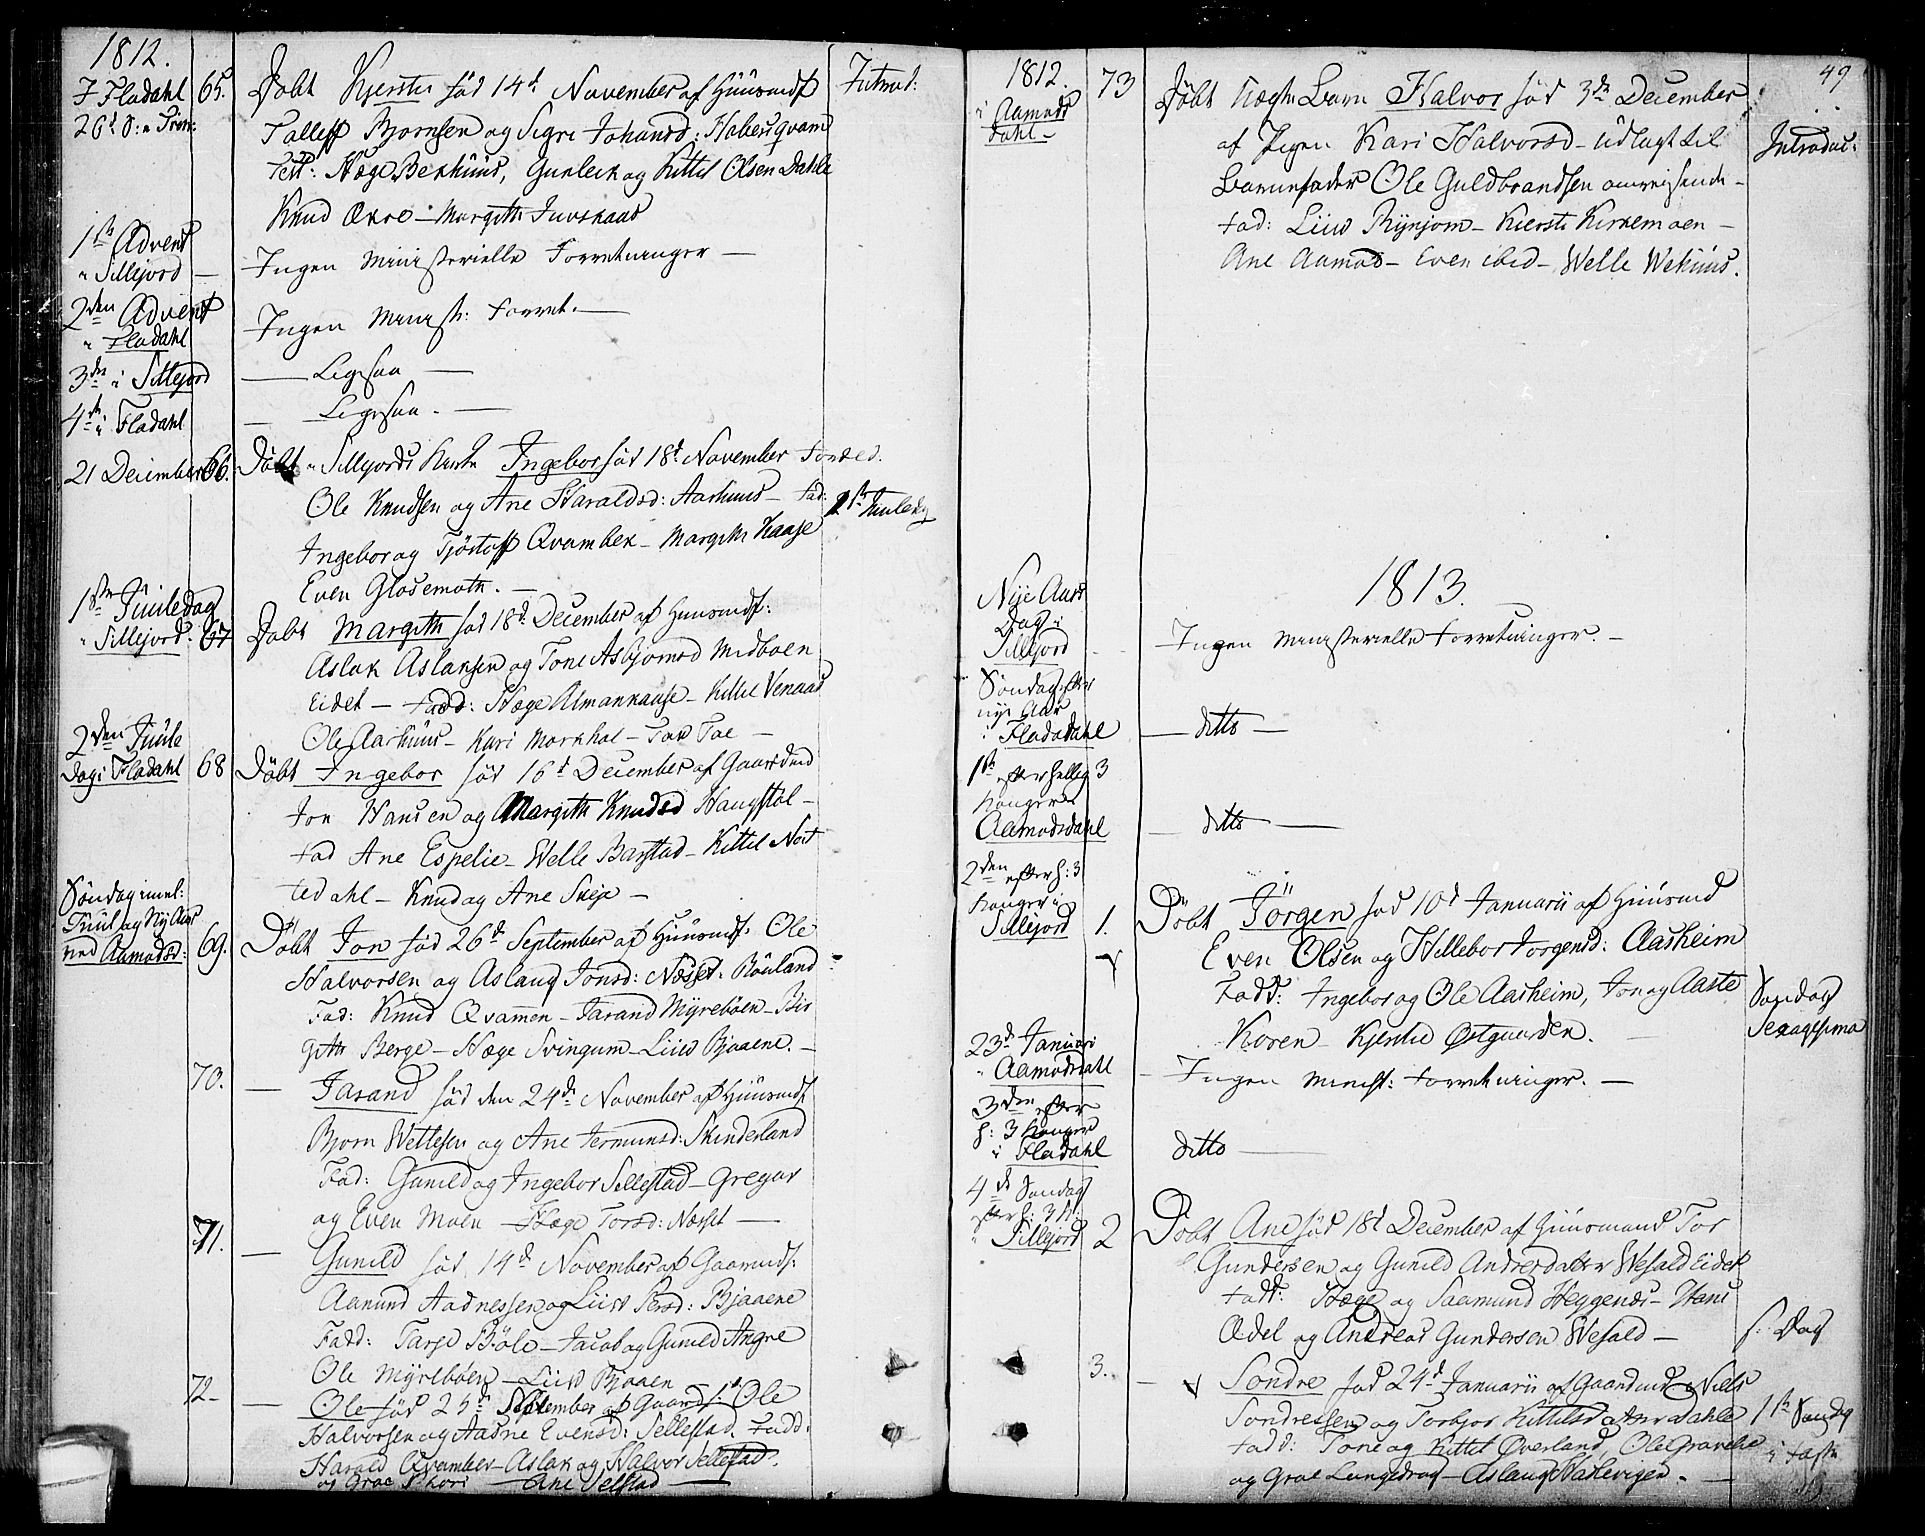 1812.
I Fladahl 65. Döbt Kjersti föd 14d November af Huusmd
26d S: e Trin: Talleff Bjornsen og Sigri Johansd: Haberqvam
Test: Hæge Bekhuus, Gunleik og Kittil Olsen Dahle
Knud Økre - Margith Juvskaas
1ste Advent
i Sillejord - Ingen ministerielle Forretninger -
2den Advent
i Fladahl Ingen minist: Forret. -
3de i Sillejord - Ligesaa -
4de i Fladahl - Ligesaa. -
21 December 66. Döbt i Sillejords Kirke Ingebor föd 18d November
Ole Knudsen og Ane Haraldsd: Aarhuus - Fad:
1ste Juuledag
Ingebor og Tjöstoff Qvambek - Margith Haase
Even Glosemoth. -
1ste Juuledag
i Sillejord. 67 Döbt Margith föd 18d December af Huusmd:
Aslak Aslaksen og Tone Asbjornsd Midboen
Eidet - Fadd: Hæge Almankaase - Kittil Venaas
Ole Aarhuus - Kari Morkhol - Tov Toe -
2den Juule
Dag i Fladahl 68 Döbt Ingebor föd 16d December af Gaardmd
Jon Hansen og Margith Knudsd Haugstöl -
Fad Ane Espelie - Welle Barstad - Kittil Nort
tedahl - Knud og Ane Skeje -
Söndag imel:
Juul og Ny Aar
ved Aamodsd: 69. Döbt Jon föd 26d September af Huusmd: Ole
Halvorsen og Aslaug Jonsd: Næsset: Röuland
Fad: Knud Qvamen - Tarand Myreboen - Bir
gith Berge - Hæge Svingum - Liiv Bjaaene. -
70. - Tarand föd den 24de November af Huusmd
Bjorn Wettesen og Ane Jermunsd: Skinderland
Fad: Gunild og Ingebor Sillestad - Gregar
og Even Moen - Hæge Torsd: Næsset -
71. - Gunild föd 14d November af Gaarmd:
Aanund Aadnessen og Liiv Persd: Bjaaene
Fadd: Tarje Böle - Jacob og Gunild Angre
Ole Myrebøen - Liiv Bjaaen
72 - - Ole föd 25d November af Gaard: Ole
Halvorsen og Aadne Evensd: Sellestad. Fadd:
Harald Qvamber - Aslak og Halvor Sellestad.
og Groe - Ane Selstad
1812.
49
i Aamods
dahl - 73 Döbt uægte Barn Halvor föd 3de December
af Pigen Kari Halvorsd - Udlagt til
Introduc:
Barnefader Ole Guldbrandsen omreisende -
Fad: Liiv Rynjom - Kiersti Kirkemoen -
Ane Aamod - Even ibid - Welle Wekuus.
1813.
Nye Aars
Dag i
Sillejord Ingen ministerielle Forretninger. -
Söndag efter
nye Aar
i Fladadahl - ditto -
1ste efter Hellig 3
Konger i
Aamodsdahl - ditto -
2den efter h: 3
Konger i
Sillejord 1. Döbt Jörgen föd 10d Januarii af Huusmd
Even Olsen og Hillebor Jorgensd: Aasheim
Fadd: Ingebor og Ole Aasheim, Jon og Aaste
Koren - Kjersti Østgaarden. -
Söndag
Sexagesima
23d Januari
i Aamodsdahl - Ingen Minist: Forretninger. -
3den efter
h: 3 Konger
i Fladahl ditto -
4de Söndag
efter h: 3 K:
i Sillejord 2 Döbt Ane föd 18d December af Huusmand Tor
Gundersen og Gunild Andresdatter Wefald Eidet
Fadd: Hæge og Saamund Heggenes - Hans
Ødel og Andreas Gundersen Wefald -
s: Dag
3. - Sondre föd 24d Januarii af Gaardmd Nills
Sondressen og Torbjor Kittilsd Dahle
1ste Söndag
i Faste
Fadd: Tone og Kittil Overland, Ole Gravelie
og Groe Lungedrag - Aslaug Haslevigen. -